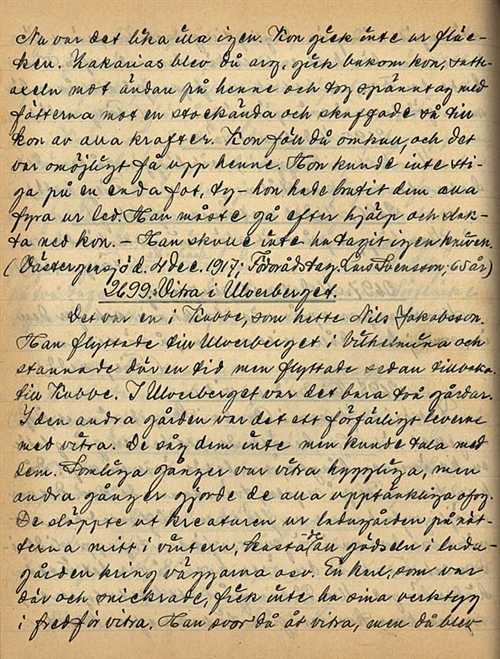 Nu var det lika illa igen. Kon gick inte ur fläc-
ken. Zakarias blev då arg, gick bakom kon, satte
axeln mot ändan på henne och tog spänntag med
fötterna mot en stockända och skuffade så till
kon av alla krafter. Kon föll då omkull, och det
var omöjligt få upp henne. Hon kunde inte sti-
ga på en enda fot, ty hon hade brutit dem alla
fyra ur led. Han måste gå efter hjälp och slak-
ta ned kon. – Han skulle inte ha tagit igen kniven.
(Västergensjö d. 4 dec. 1917; Förrådstag. Lars Svensson, 65 år)
2699. Vitra i Uloerberget.
Det var en i Kubbe, som hette Nils Jakobsson.
Han flyttade till Uloerberget i Vilhelmina och
stannade där en tid men flyttade sedan tillbaka
till Kubbe. I Uloerberget var det bara två gårdar.
I den andra gården var det ett förfärligt leverne
med vitra. De såg dem inte men kunde tala med
dem. Somliga gånger var vitra hyggliga, men
andra gånger gjorde de alla upptänkliga ofog.
De släppte ut kreaturen ur ladugården på nät-
terna mitt i vintern, kastade gödseln i ladu-
gården kring väggarna osv. En karl, som var
där och snickrade, fick inte ha sina verktyg
i fred för vitra. Han svor då åt vitra, men då blev